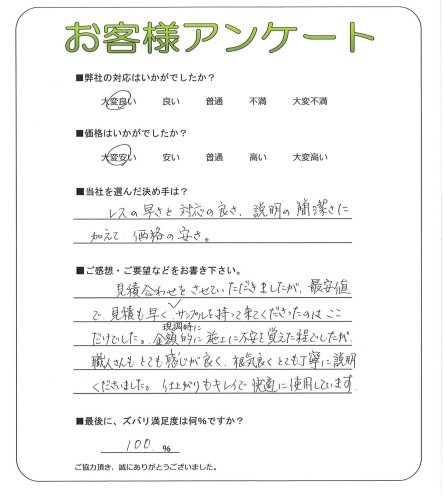 お客様アンケート
■弊社の対応はいかがでしたか?
大変良い 良い 普通 不満 大変不満
■価格はいかがでしたか?
大変安い 安い 普通 高い 大変高い
■当社を選んだ決め手は?
レスの早さと対応の良さ、説明の簡潔さに
加えて価格の安さ。
■ご感想・ご要望などをお書き下さい。
見積合わせをさせていただきましたが、最安値
で、見積も早く、サンプルを持って来てくださったのはここ
現調時に
だけでした。金額的に施工に不安を覚えた程でしたが、
職人さんもとても感じが良く、根気良くとても丁寧に説明
くださいました。仕上がりもキレイで快適に使用しています。
■最後に、ズバリ満足度は何%ですか?
100 %
ご協力頂き、誠にありがとうございました。